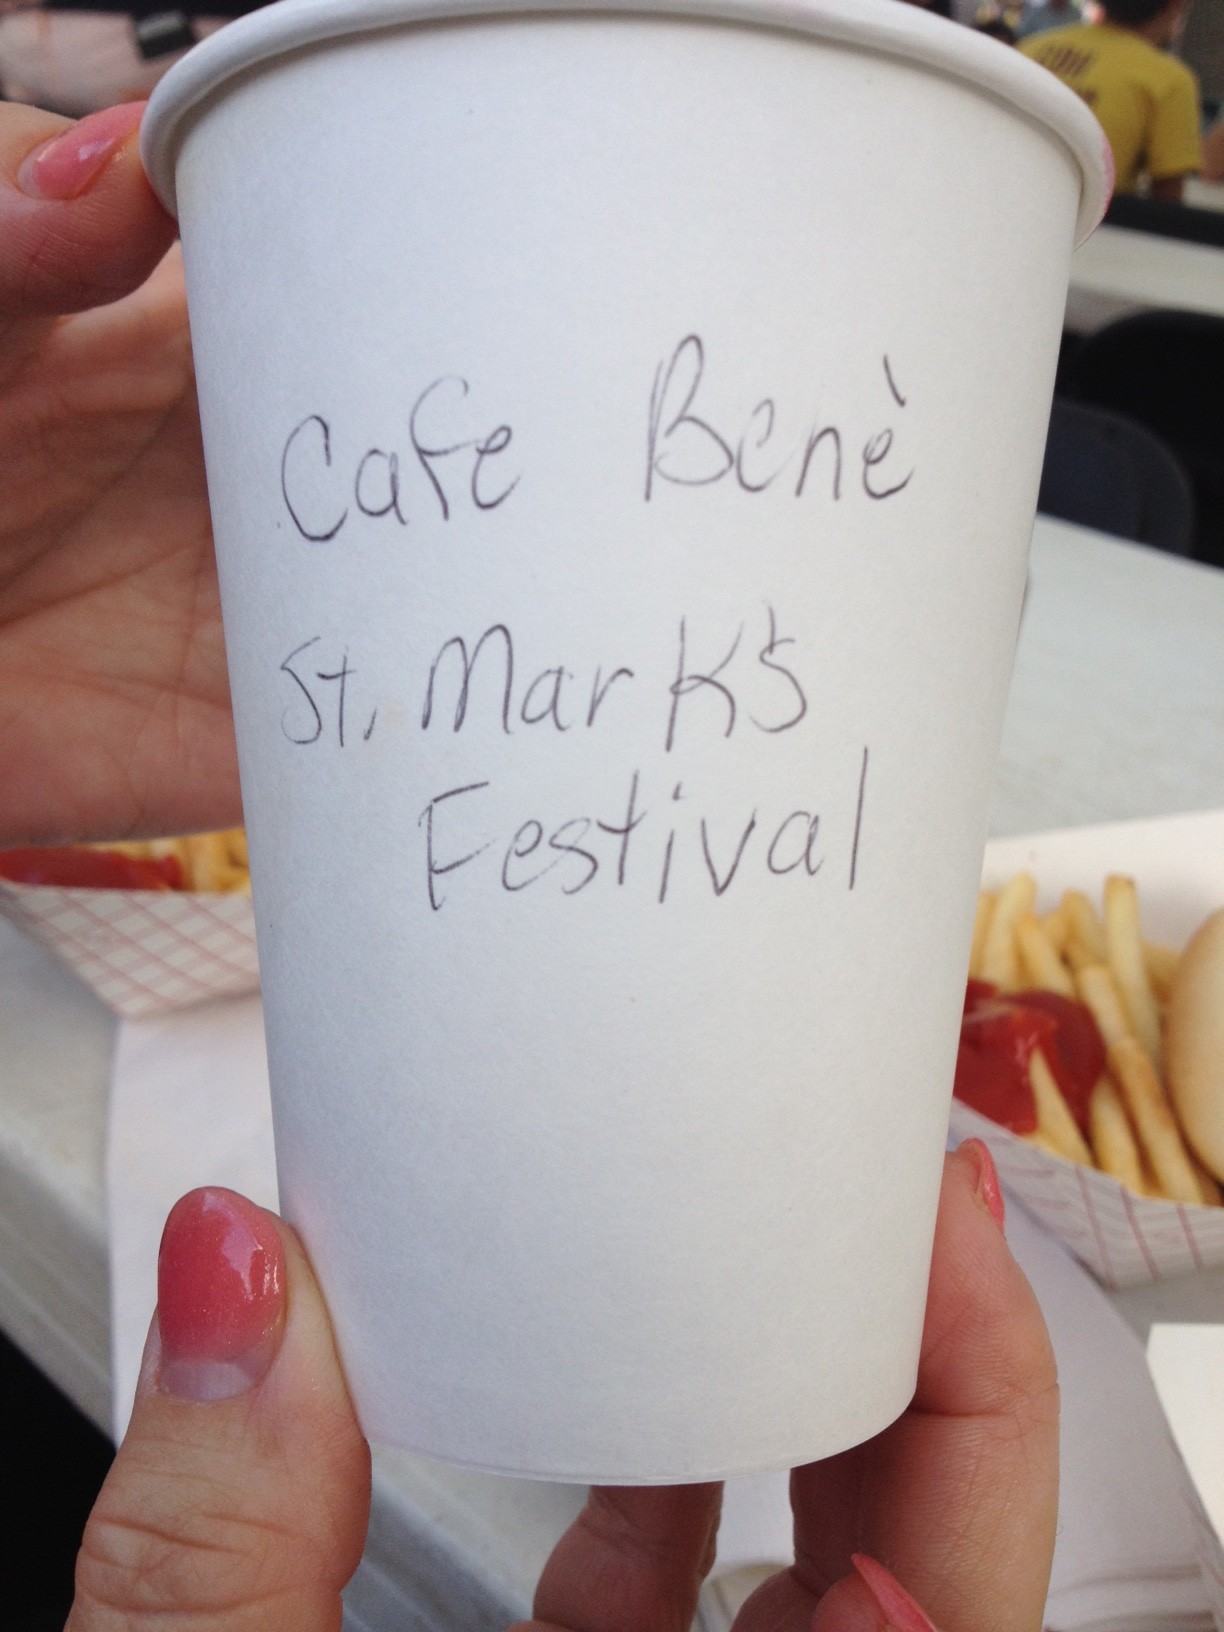 Cafe Benè
St. Mark's
Festival